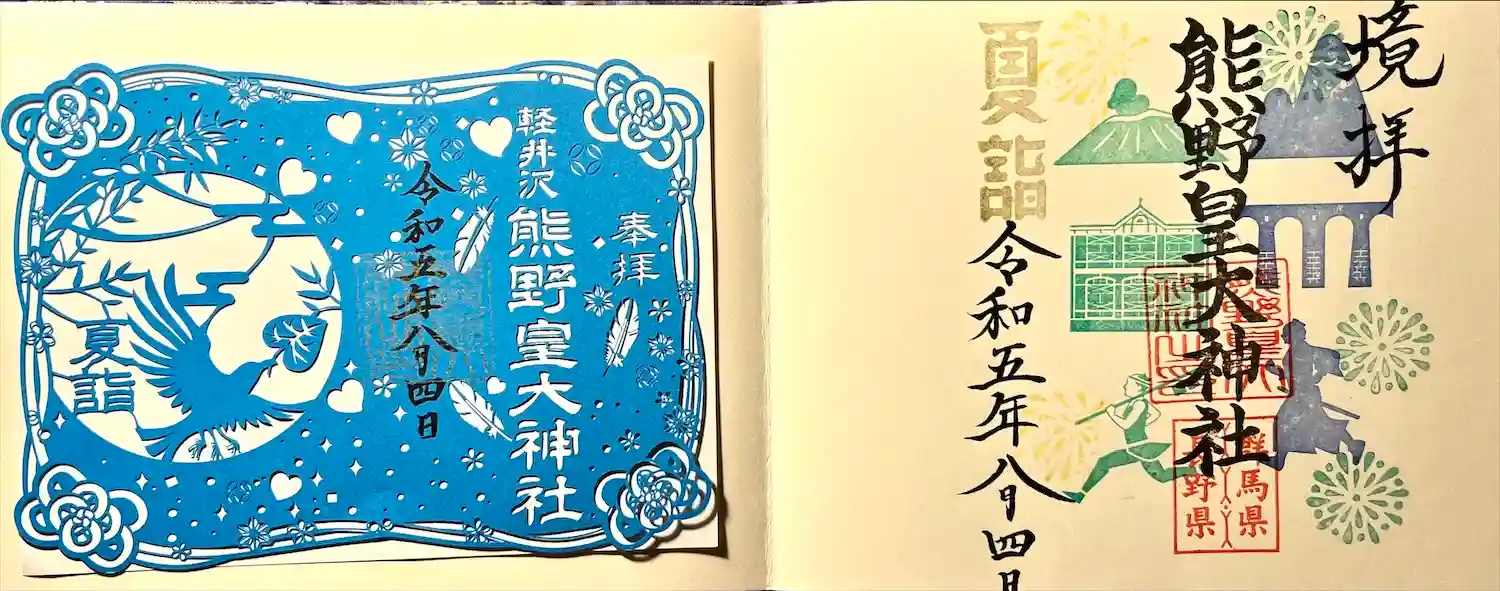 境拝
熊野皇大神社
群馬県
長野県
夏詣
令和五年八月四日
奉拝
軽井沢
熊野皇大神社
令和五年八月四日
夏詣